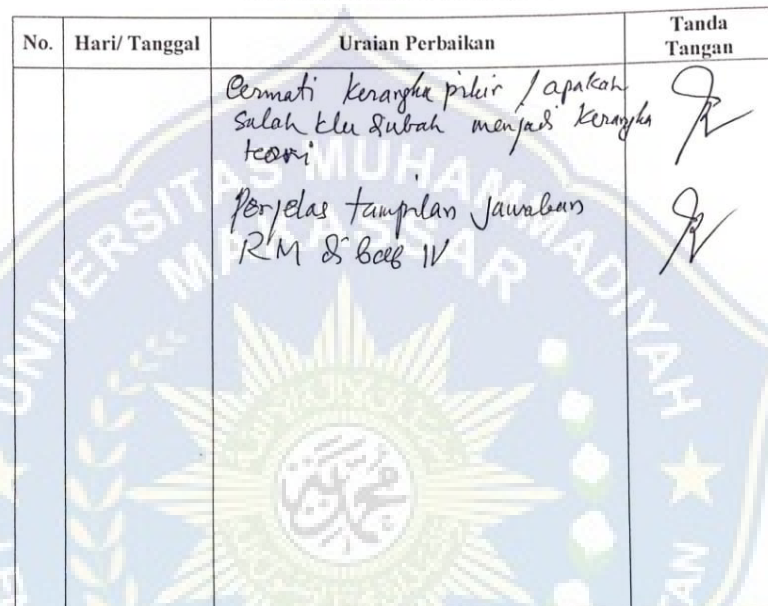 No. Hari/ Tanggal Uraian Perbaikan Tanda Tangan
Cermati kerangka pikir / apakah
salah klu diubah menjadi kerangka
teori
Perjelas tampilan jawaban
RM di bab IV
UNIVERSITAS MUHAMMADIYAH
MAKASSAR